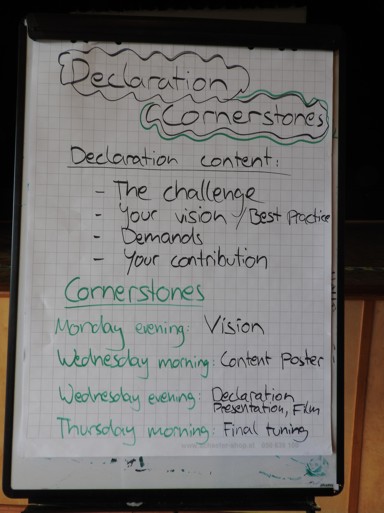 Declaration
Cornerstones
Declaration content:
- The challenge
- Your vision / Best Practice
- Demands
- Your contribution
Cornerstones
Monday evening: Vision
Wednesday morning: Content Poster
Wednesday evening: Declaration
Presentation, Film
Thursday morning: Final tuning